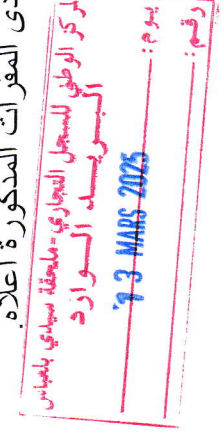 دى المقرات المذكورة أعلاه.
المركز الوطني للسجل التجاري -ملحقة سيدي بلعباس
البريد الوارد
يوم :
3 MARS 2025
رقم :